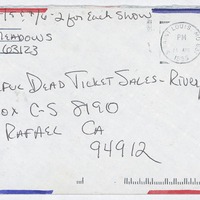 -2 for Each Show
MEADOWS
63123
PM
FUL DEAD TICKET SALES - RIVER
OX C-S 8190
RAFAEL CA
94912